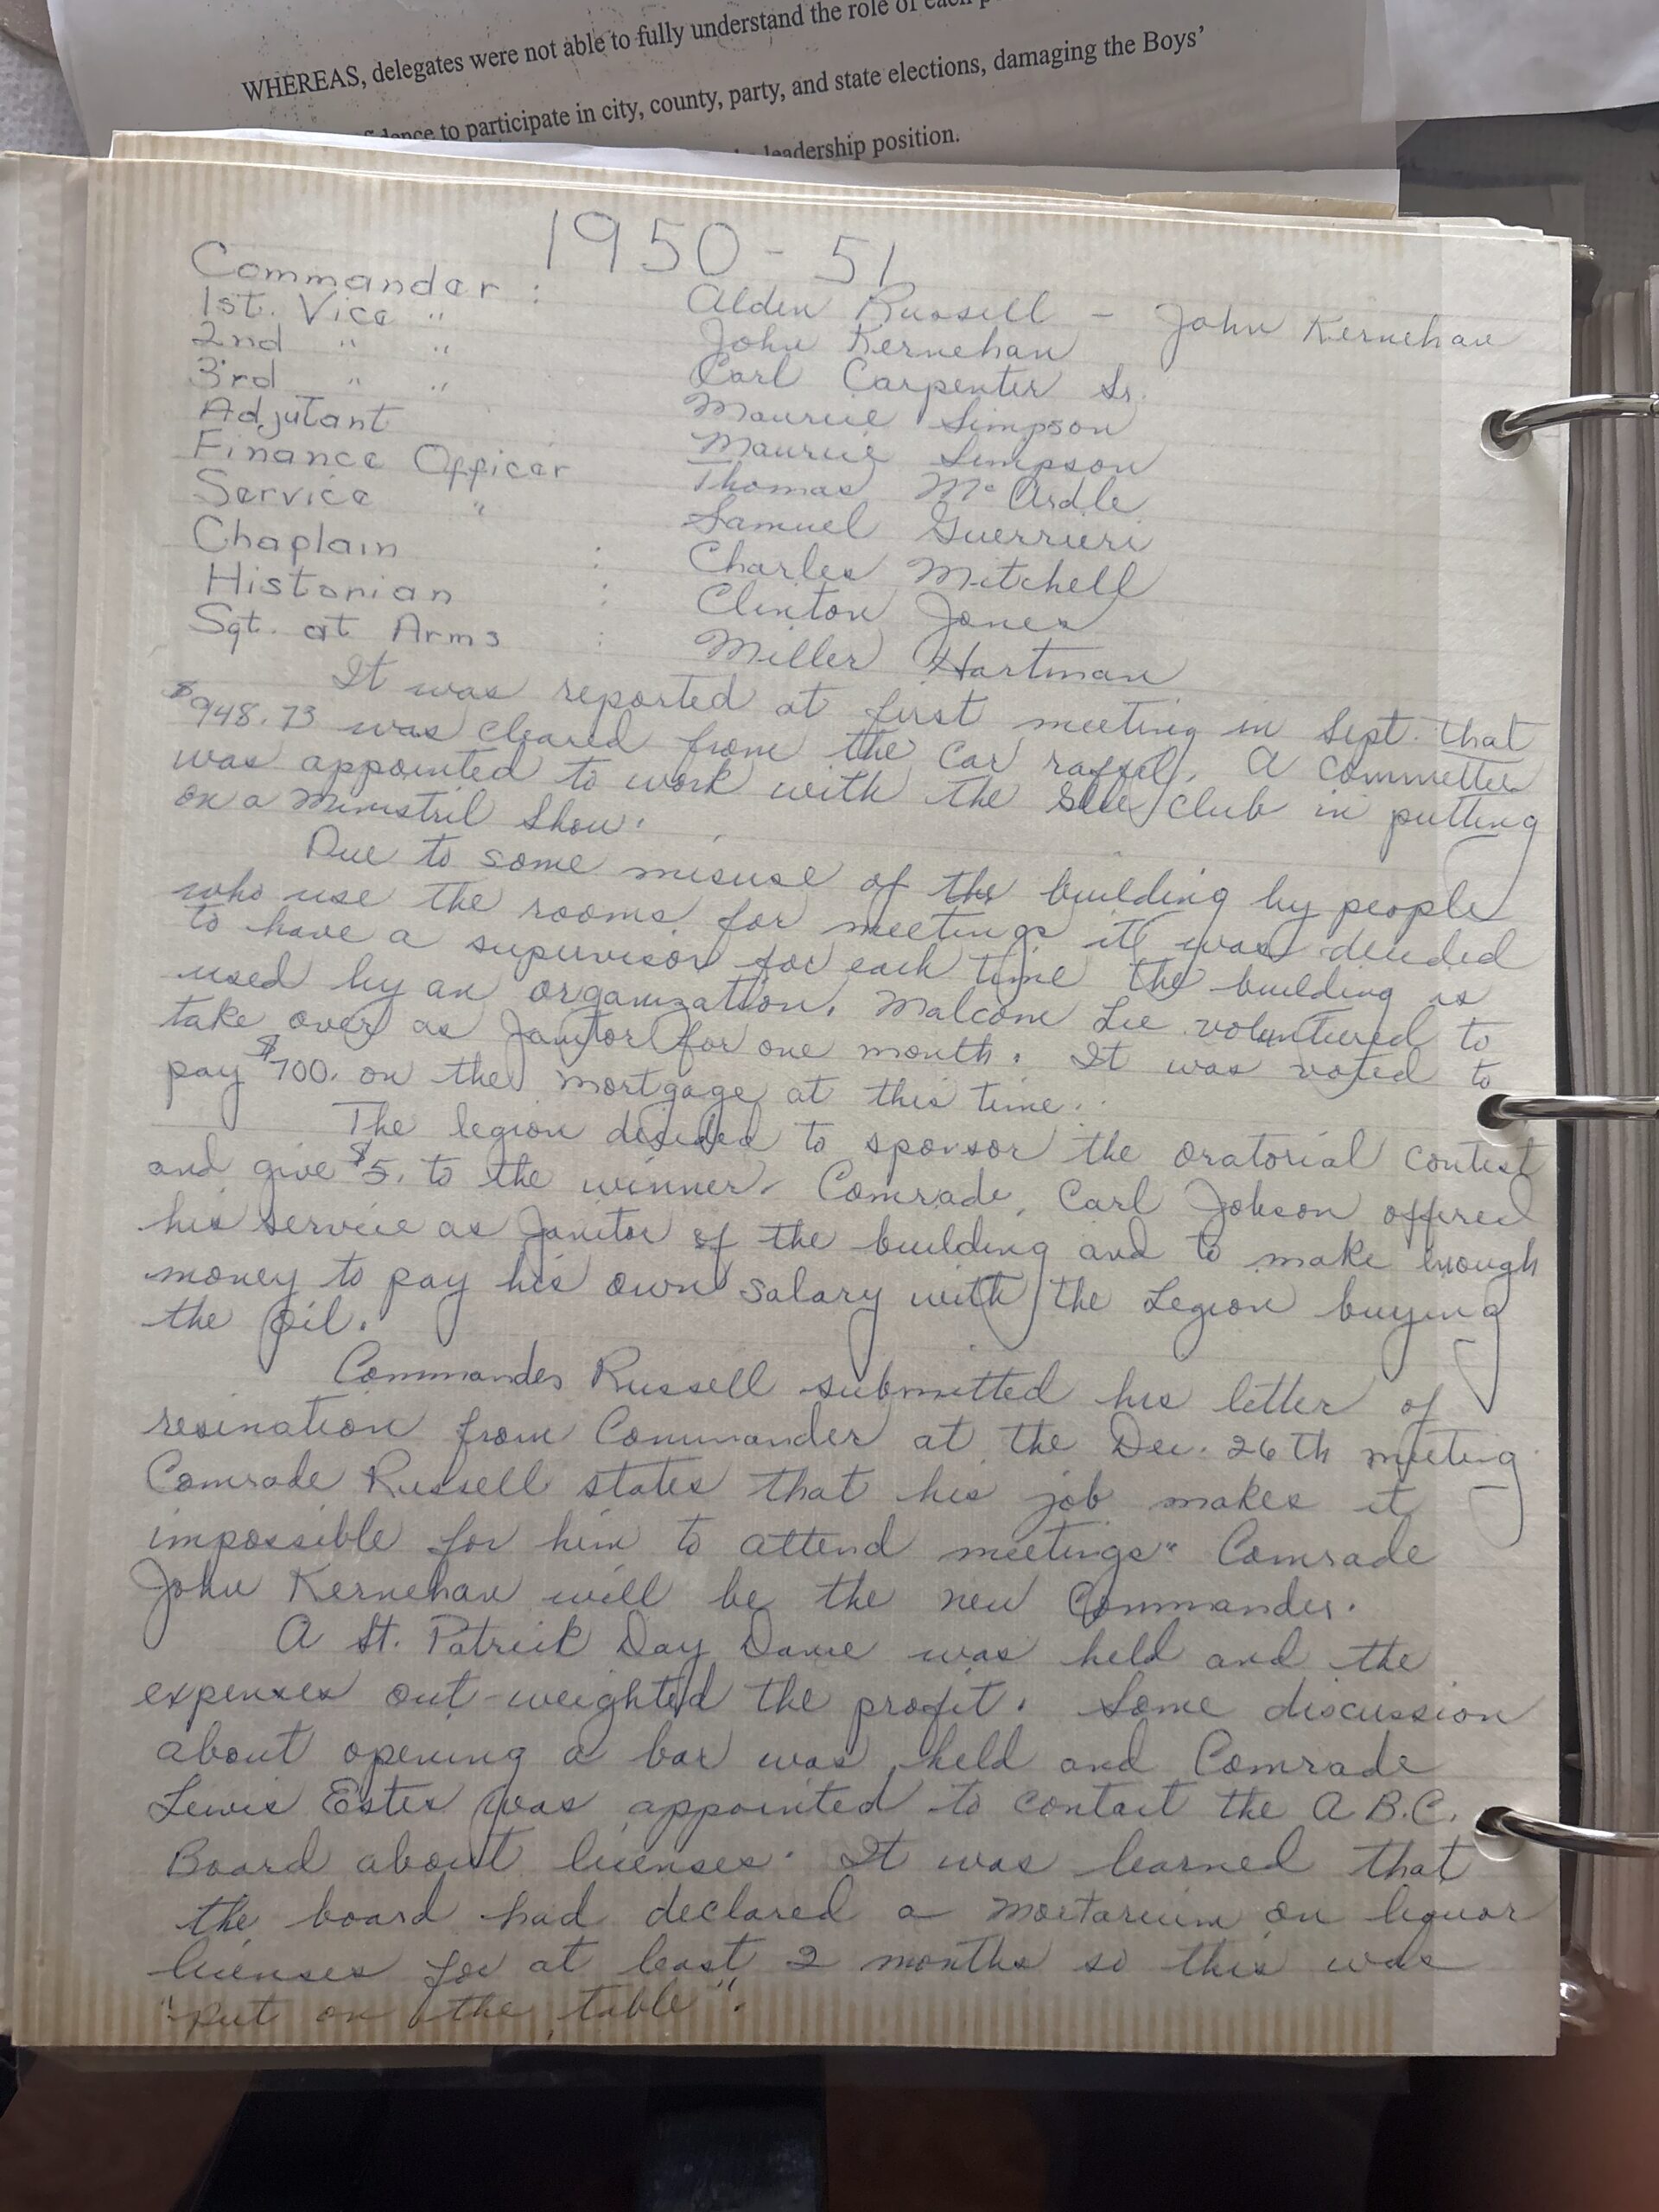 WHEREAS, delegates were not able to fully understand the role of each
to participate in city, county, party, and state elections, damaging the Boys'
leadership position.
1950-51
Commander : Alden Russell - John Kernehan
1st. Vice " John Kernehan
2nd " " Carl Carpenter Sr.
3rd " " Maurice Simpson
Adjutant Maurice Simpson
Finance Officer Thomas McArdle
Service " Samuel Guerrieri
Chaplain : Charles Mitchell
Historian : Clinton Jones
Sgt. at Arms : Miller Hartman
It was reported at first meeting in Sept. that
$948.73 was cleared from the car raffel. A committee
was appointed to work with the Glee Club in putting
on a Ministril Show.
Due to some misuse of the building by people
who use the rooms for meetings it was decided
to have a supervisor for each time the building is
used by an organization. Malcom Lee volunteered to
take over as Janitor for one month. It was voted to
pay $700. on the mortgage at this time.
The legion decided to sponsor the oratorial contest
and give $5. to the winner. Comrade, Carl Jobson offered
his service as Janitor of the building and to make enough
money to pay his own salary with the Legion buying
the oil.
Commander Russell submitted his letter of
resination from Commander at the Dec. 26th meeting
Comrade Russell states that his job makes it
impossible for him to attend meetings" Comrade
John Kernehan will be the new Commander.
A St. Patrick Day Dance was held and the
expenses out-weighted the profit. Some discussion
about opening a bar was held and Comrade
Lewis Estes was appointed to contact the A.B.C.
Board about licenses. It was learned that
the board had declared a moetarium on liquor
licenses for at least 2 months so this was
"put on the table".